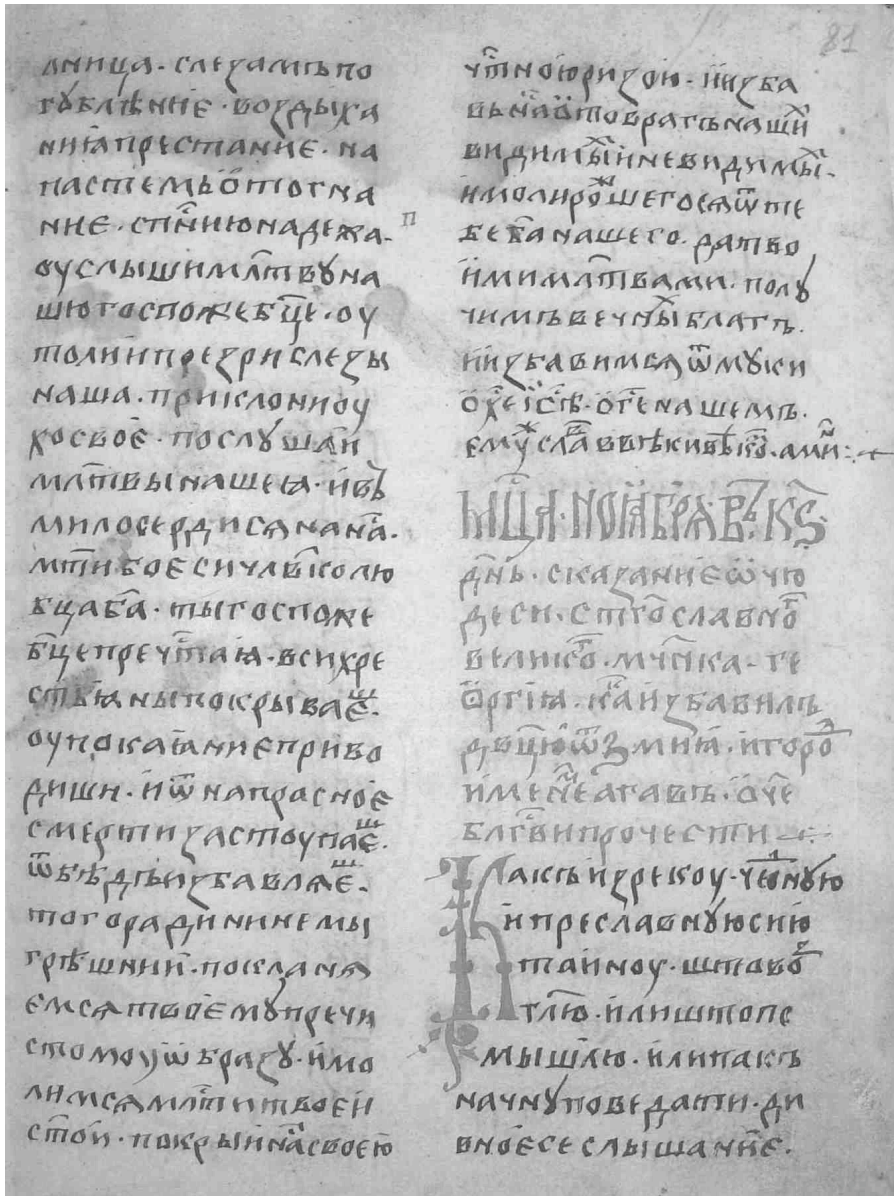 81
лница · слезамъ по
гублѣниѥ · воздыха
ниꙗ престаниѥ · на
пастемъ ѿтогна
ниѥ · сп҃нию надежа ·
п
оуслыши мл҃тву на
шю госпоже бц҃е · оу
толи и презри слезы
наша · приклони оу
хо своѥ · послушаи
мл҃твы нашеꙗ · и въ
милосердися на на ·
мт҃и бо ѥси чл҃вколю
бца ба҃ · ты госпоже
бц҃е преч҃таꙗ · всихъ хре
стьꙗны покрываѥш ·
оу покаꙗниѥ приво
диши · и ѿ напрасноѥ
смерти застоупаѥш ·
ѿ бѣдъ избавляѥш ·
того ради нине мы
грѣшнии · покланя
ѥмся твоѥму пречи
стомоу ѡбразу · и мо
лимся мл҃ти твоеи
ст҃ои · покрыи на своею
ч҃тною ризою · и изба
ви на ѿ врагъ наших
видимых и невидимых ·
и моли рожшегося ѿ те
бе ба҃ нашего · да тво
ими мл҃твами · полу
чимъ вечных благъ ·
и избавимся ѿ муки
о х҃е іс҃ѣ · о г҃е нашемъ ·
емуж слав в вѣки вѣком · аминь
мц҃а · ноꙗбря · въ · к҃ѕ ·
дн҃ь · сказаниѥ ѡ чю
деси · ст҃го славног
великог · мч҃нка · ге
ѡргиꙗ · како избавилъ
дв҃цю ѿ змиꙗ · и город
именем агавъ · ѿч҃е
блг҃ви прочести
Какъ изрекоу · ч҃тную
и преславную сию
таиноу · што во
тлю · или што пе
мышлю · или пакъ
начну поведати · ди
вноѥ се слышаниѥ ·